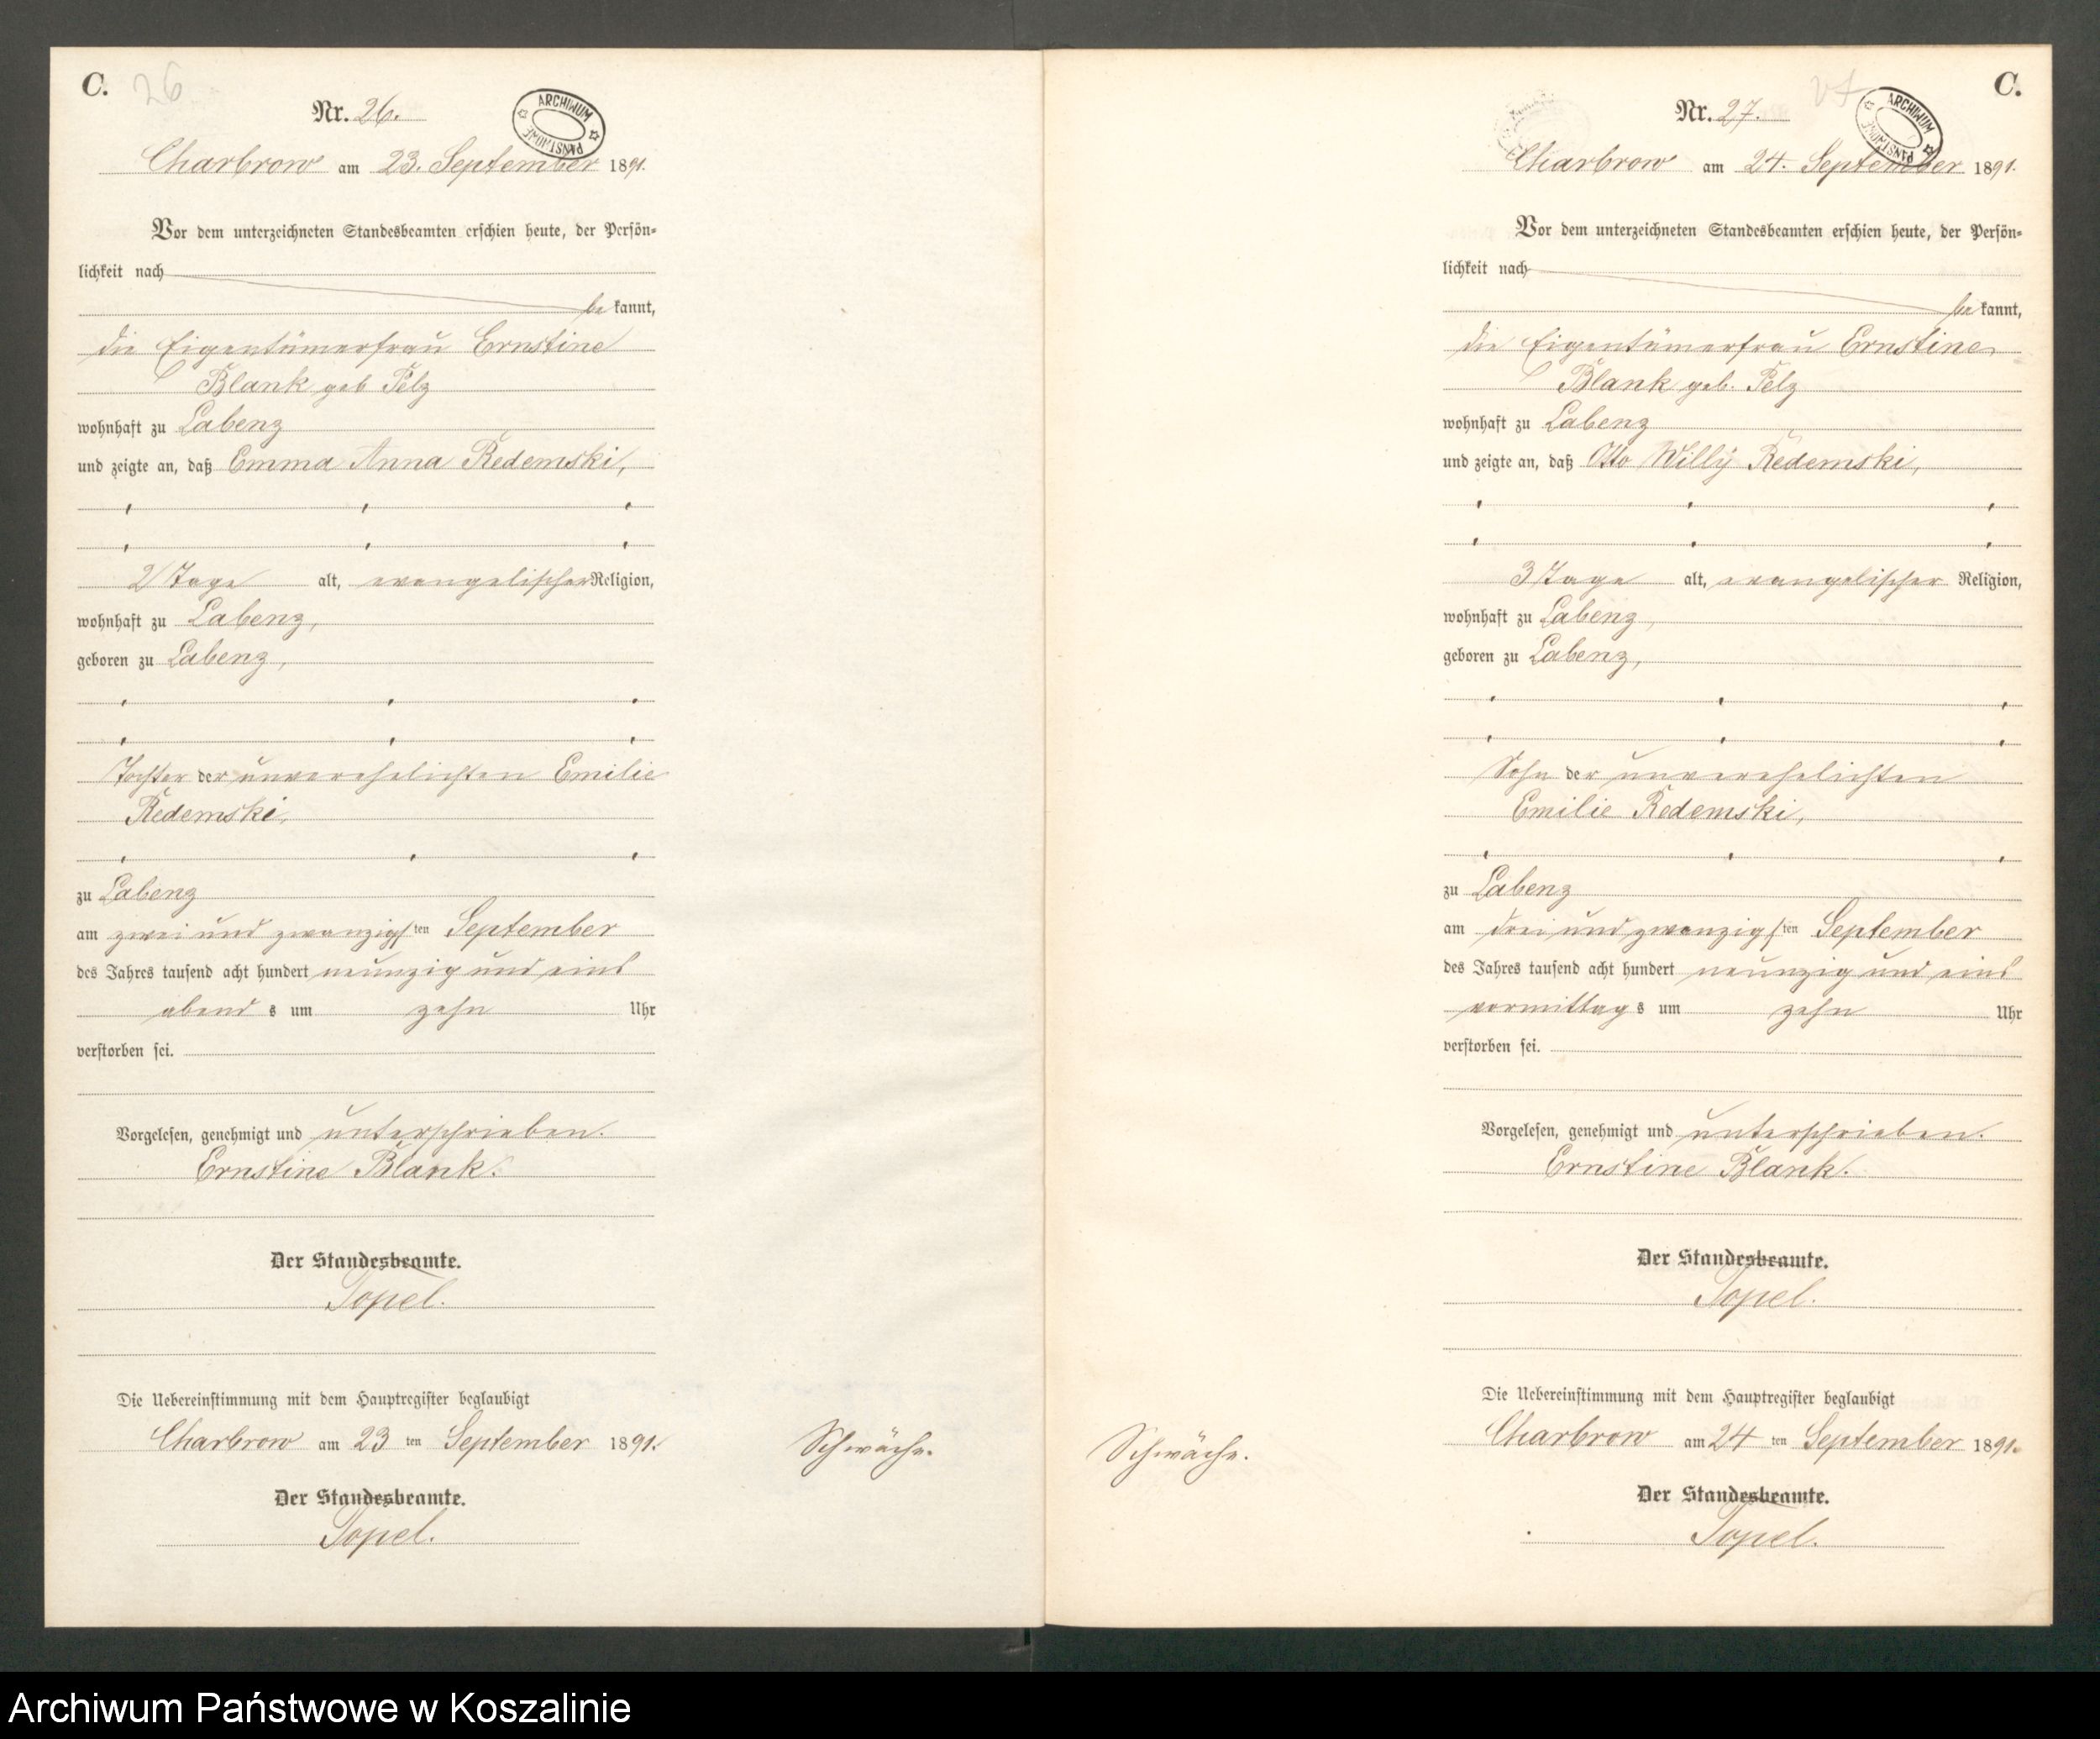 C. 26
Nr. 26.
ARCHIWUM PAŃSTWOWE
Charbrow am 23. September 1891.
Vor dem unterzeichneten Standesbeamten erschien heute, der Persön-
lichkeit nach
be kannt,
die Eigentümerfrau Ernstine
Blank geb Pelz
wohnhaft zu Labenz
und zeigte an, daß Emma Anna Redemski,
2 Tage alt, evangelischer Religion,
wohnhaft zu Labenz,
geboren zu Labenz,
Tochter der unverehelichten Emilie
Redemski,
zu Labenz
am zwei und zwanzigsten September
des Jahres tausend acht hundert neunzig und eins
abends um zehn Uhr
verstorben sei.
Vorgelesen, genehmigt und unterschrieben.
Ernstine Blank.
Der Standesbeamte.
Topel.
Die Uebereinstimmung mit dem Hauptregister beglaubigt
Charbrow am 23 ten September 1891.
Der Standesbeamte.
Topel.
Schwäche.
C.
27
Nr. 27.
ARCHIWUM PAŃSTWOWE
Charbrow am 24. September 1891.
Vor dem unterzeichneten Standesbeamten erschien heute, der Persön-
lichkeit nach
be kannt,
die Eigentümerfrau Ernstine
Blank geb. Pelz
wohnhaft zu Labenz
und zeigte an, daß Otto Willy Redemski,
3 Tage alt, evangelischer Religion,
wohnhaft zu Labenz,
geboren zu Labenz,
Sohn der unverehelichten
Emilie Redemski,
zu Labenz
am drei und zwanzigsten September
des Jahres tausend acht hundert neunzig und eins
vormittags um zehn Uhr
verstorben sei.
Vorgelesen, genehmigt und unterschrieben.
Ernstine Blank.
Der Standesbeamte.
Topel.
Die Uebereinstimmung mit dem Hauptregister beglaubigt
Charbrow am 24 ten September 1891.
Der Standesbeamte.
Topel.
Schwäche.
Archiwum Państwowe w Koszalinie